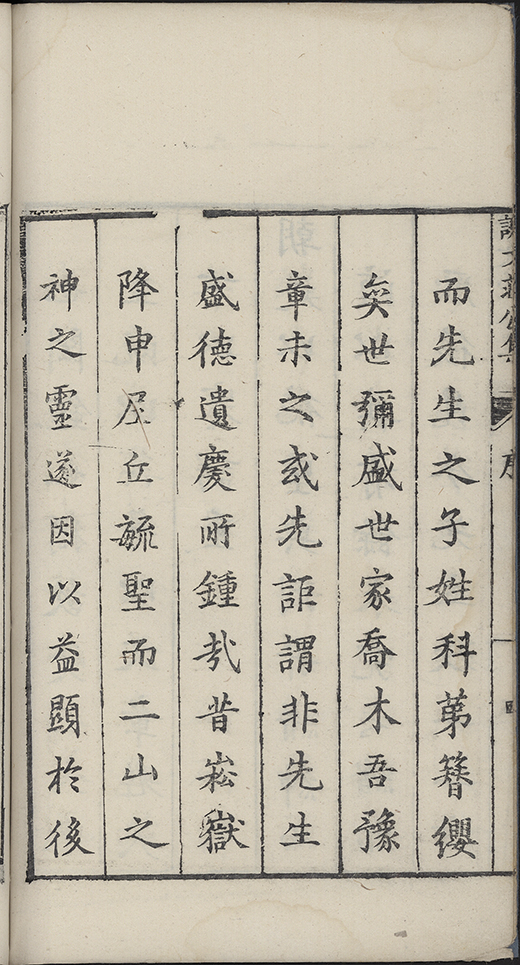 而先生之子姓科苐簪纓
奕世彌盛世家喬木吾豫
章未之或先詎謂非先生
盛德遺慶所鍾㢤昔崧嶽
降申尼丘毓聖而二山之
神之靈遂因以益顯於後
文莊公集
序
四